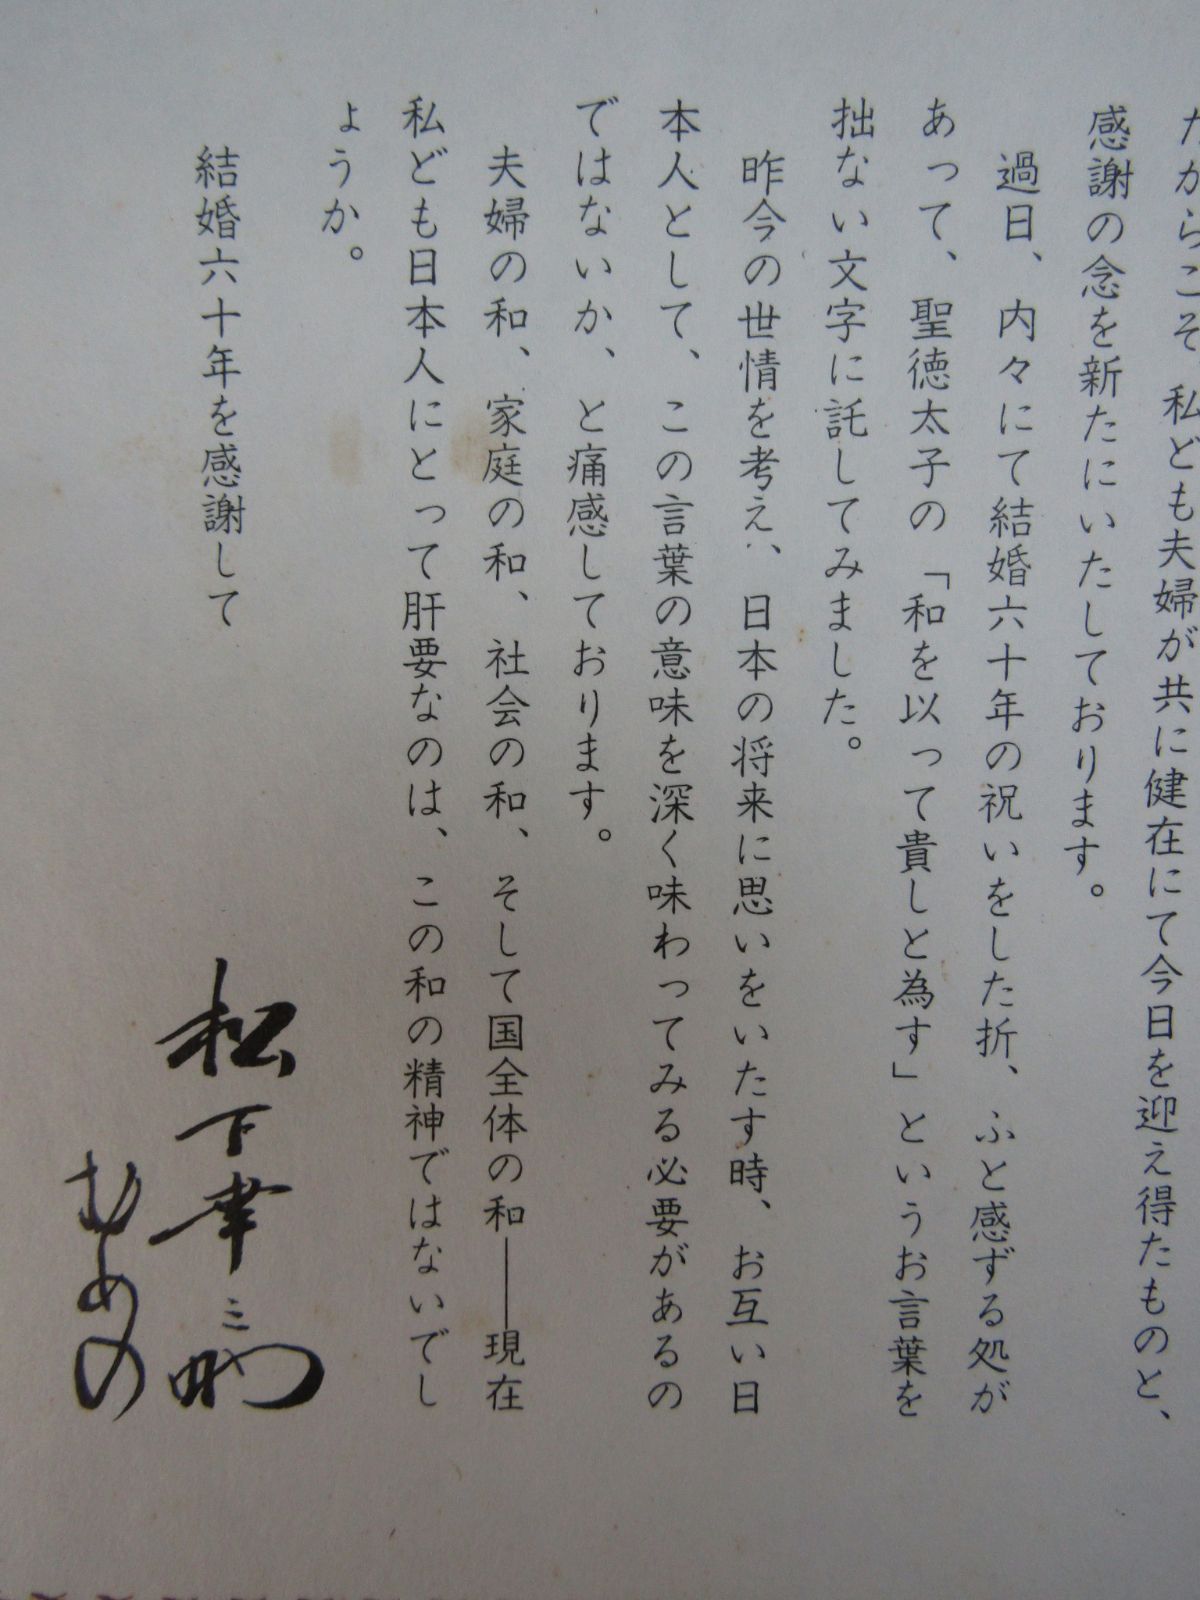 だからこそ 私ども夫婦が共に健在にて今日を迎え得たものと、
感謝の念を新たにいたしております。
過日、内々にて結婚六十年の祝いをした折、ふと感ずる処が
あって、聖徳太子の「和を以って貴しと為す」というお言葉を
拙ない文字に託してみました。
昨今の世情を考え、日本の将来に思いをいたす時、お互い日
本人として、この言葉の意味を深く味わってみる必要があるの
ではないか、と痛感しております。
夫婦の和、家庭の和、社会の和、そして国全体の和――現在
私ども日本人にとって肝要なのは、この和の精神ではないでし
ょうか。
結婚六十年を感謝して
松下幸之助
むめの